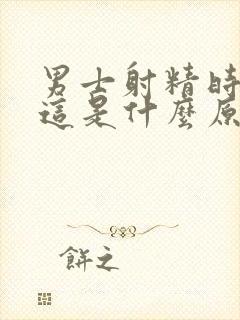 男士射精時
這是什麼原
餅之